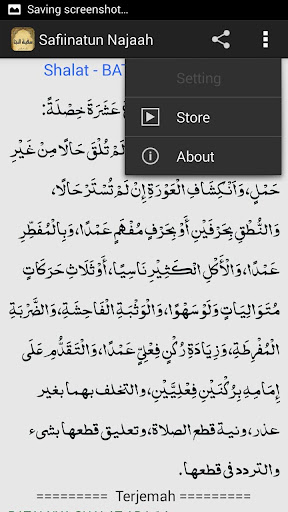 Saving screenshot...
Safiinatun Najaah
Shalat - BAT
Setting
Store
About
عَشَرَةَ خِصْلَةً:
لَمْ تُلْقَ حَالًا مِنْ غَيْرِ
حَمْلٍ، وَآنْكِشَافُ الْعَوْرَةِ إِنْ لَمْ تُسْتَرْ حَالًا،
وَالنُّطْقُ بِحَرْفَيْنِ أَوْ بِحَرْفٍ مُفْهِمٍ عَمْدًا، وَبِالْمُفَطِّرِ
عَمْدًا، وَالْأَكْلُ الْكَثِيْرُ نَاسِيًا، أَوْ ثَلَاثُ حَرَكَاتٍ
مُتَوَالِيَاتٍ وَلَوْ سَهْوًا، وَالْوَثْبَةُ الْفَاحِشَةُ، وَالضَّرْبَةُ
الْمُفْرِطَةُ، وَزِيَادَةُ رُكْنٍ فِعْلِيٍّ عَمْدًا، وَالتَّقَدُّمُ عَلَى
إِمَامِهِ بِرُكْنَيْنِ فِعْلِيَّيْنِ، والتخلف بهما بغير
عذر، ونية قطع الصلاة، وتعليق قطعها بشيء
والتردد في قطعها.
========= Terjemah =========